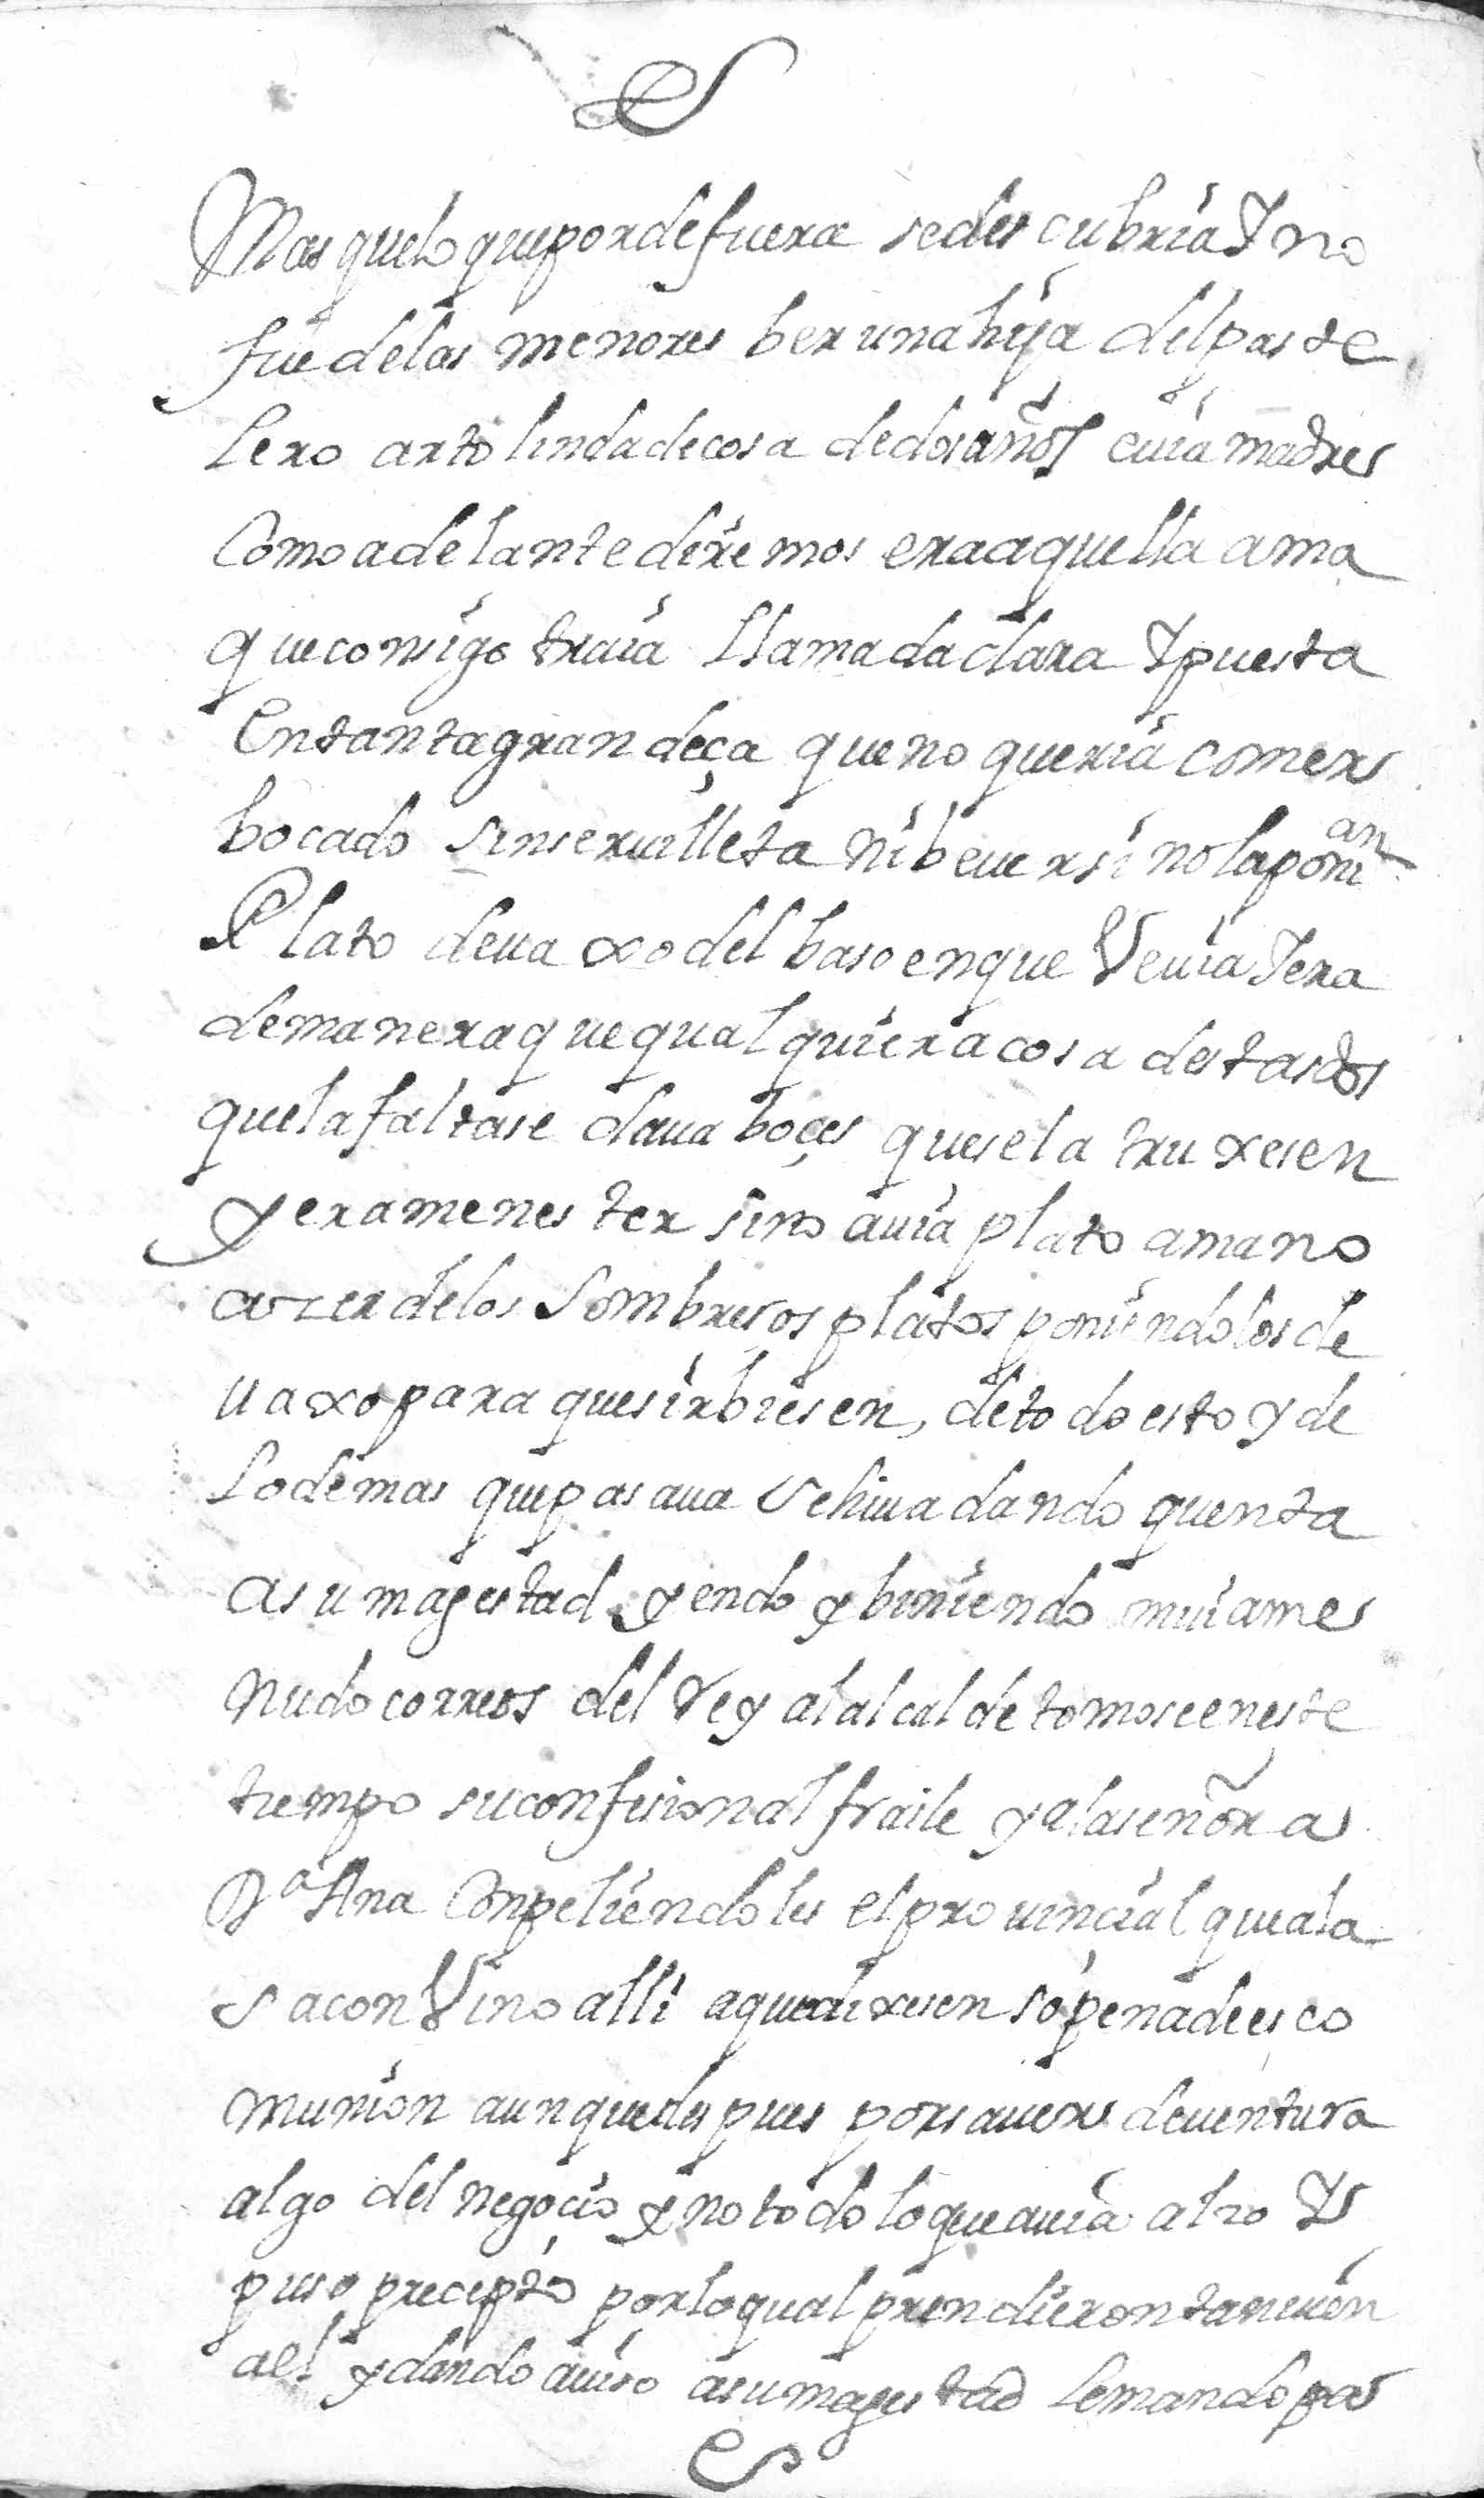 Mas quelo quepordefuera sedes cubria Y no
fue delas menores ber una hija del paste
lero arto linda decosa dedos años cuia madres
Como adelante diremos eraaquella ama
queconsigo traia llamadaclara Y puesta
Entantagrandeça queno queria comers
bocado sinserualleta nibeuer sinolaponian
Plato deuaxodel baso enque Veuia Yera
demaneraquequalquiera cosa destasdos
quelafaltase daua boçes quesela truxesen
yeramenester sino auia plato amano
azerdelos Sombreros platos poniendolosde
uaxopara quesirbiesen, detodoesto y de
Lodemas quepasaua sehiuadando quenta
asumagestad yendo y biniendo muiames
nudocorreos del Rey alalcalde tomoseeneste
tiempo suconfisional fraile yalaseñora
Dª Ana Conpeliendoles elprouincial queala
saconVino alli aquedixesen sopenadeesco
munion aunquedespues porsauers deuentura
algo del negocio y notodo loqueauia alzo Y
puso precepto porloqual prendierontanuien
ael ydando auiso asumagestad lemandopas